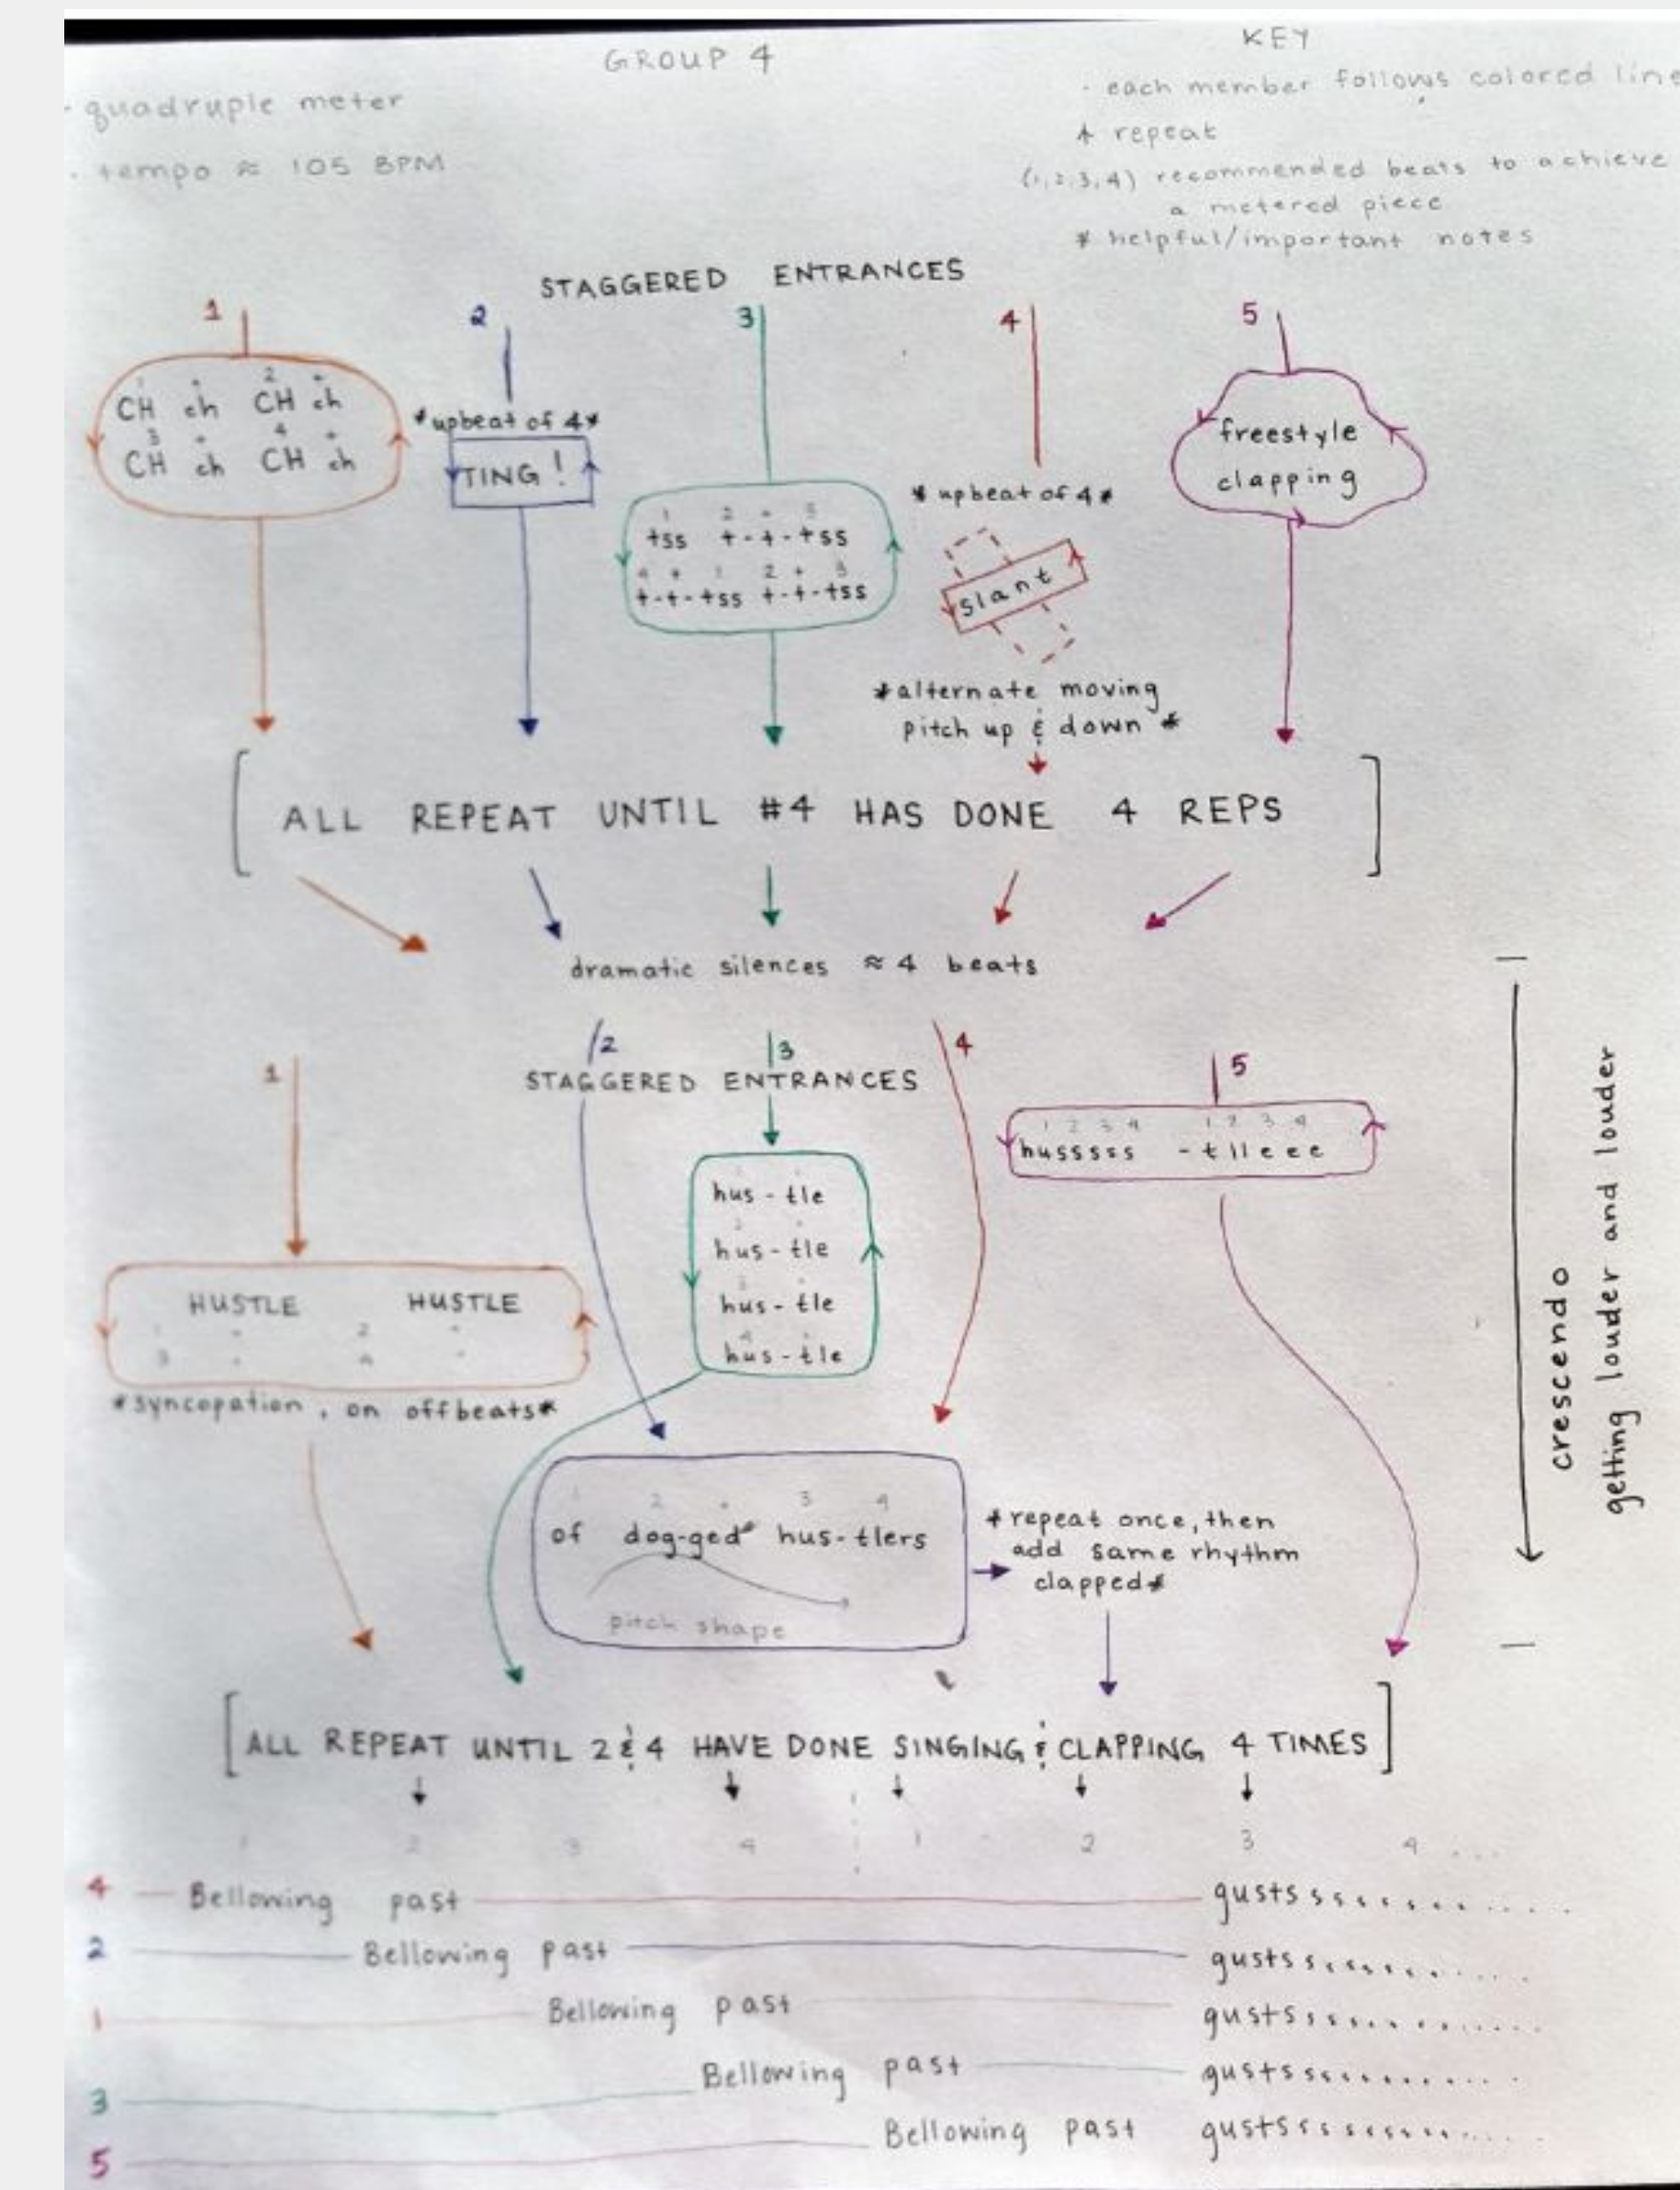 GROUP 4
KEY
· quadruple meter
· tempo ≈ 105 BPM
· each member follows colored line
↑ repeat
(1,2,3,4) recommended beats to achieve
a metered piece
* helpful/important notes
STAGGERED ENTRANCES
1
1 + 2 +
CH ch CH ch
3 + 4 +
CH ch CH ch
2
*upbeat of 4*
TING!
3
1 2 + 3
tss t-t-tss
4 + 1 2 + 3
t-t-tss t-t-tss
4
*upbeat of 4*
slant
*alternate moving
pitch up & down*
5
freestyle
clapping
[ALL REPEAT UNTIL #4 HAS DONE 4 REPS]
dramatic silences ≈ 4 beats
1
2
3
4
5
STAGGERED ENTRANCES
HUSTLE HUSTLE
1 + 2 +
3 + 4 +
*syncopation, on offbeats*
1 +
hus-tle
2 +
hus-tle
3 +
hus-tle
4 +
hus-tle
1 2 3 4 1 2 3 4
husssss -tlleee
1 2 + 3 4
of dog-ged hus-tlers
pitch shape
*repeat once, then
add same rhythm
clapped*
crescendo
getting louder and louder
[ALL REPEAT UNTIL 2 & 4 HAVE DONE SINGING & CLAPPING 4 TIMES]
1 2 3 4 1 2 3 4 ....
4 Bellowing past gustssssssss......
2 Bellowing past gustssssssss......
1 Bellowing past gustssssssss......
3 Bellowing past gustssssssss......
5 Bellowing past gustssssssss......